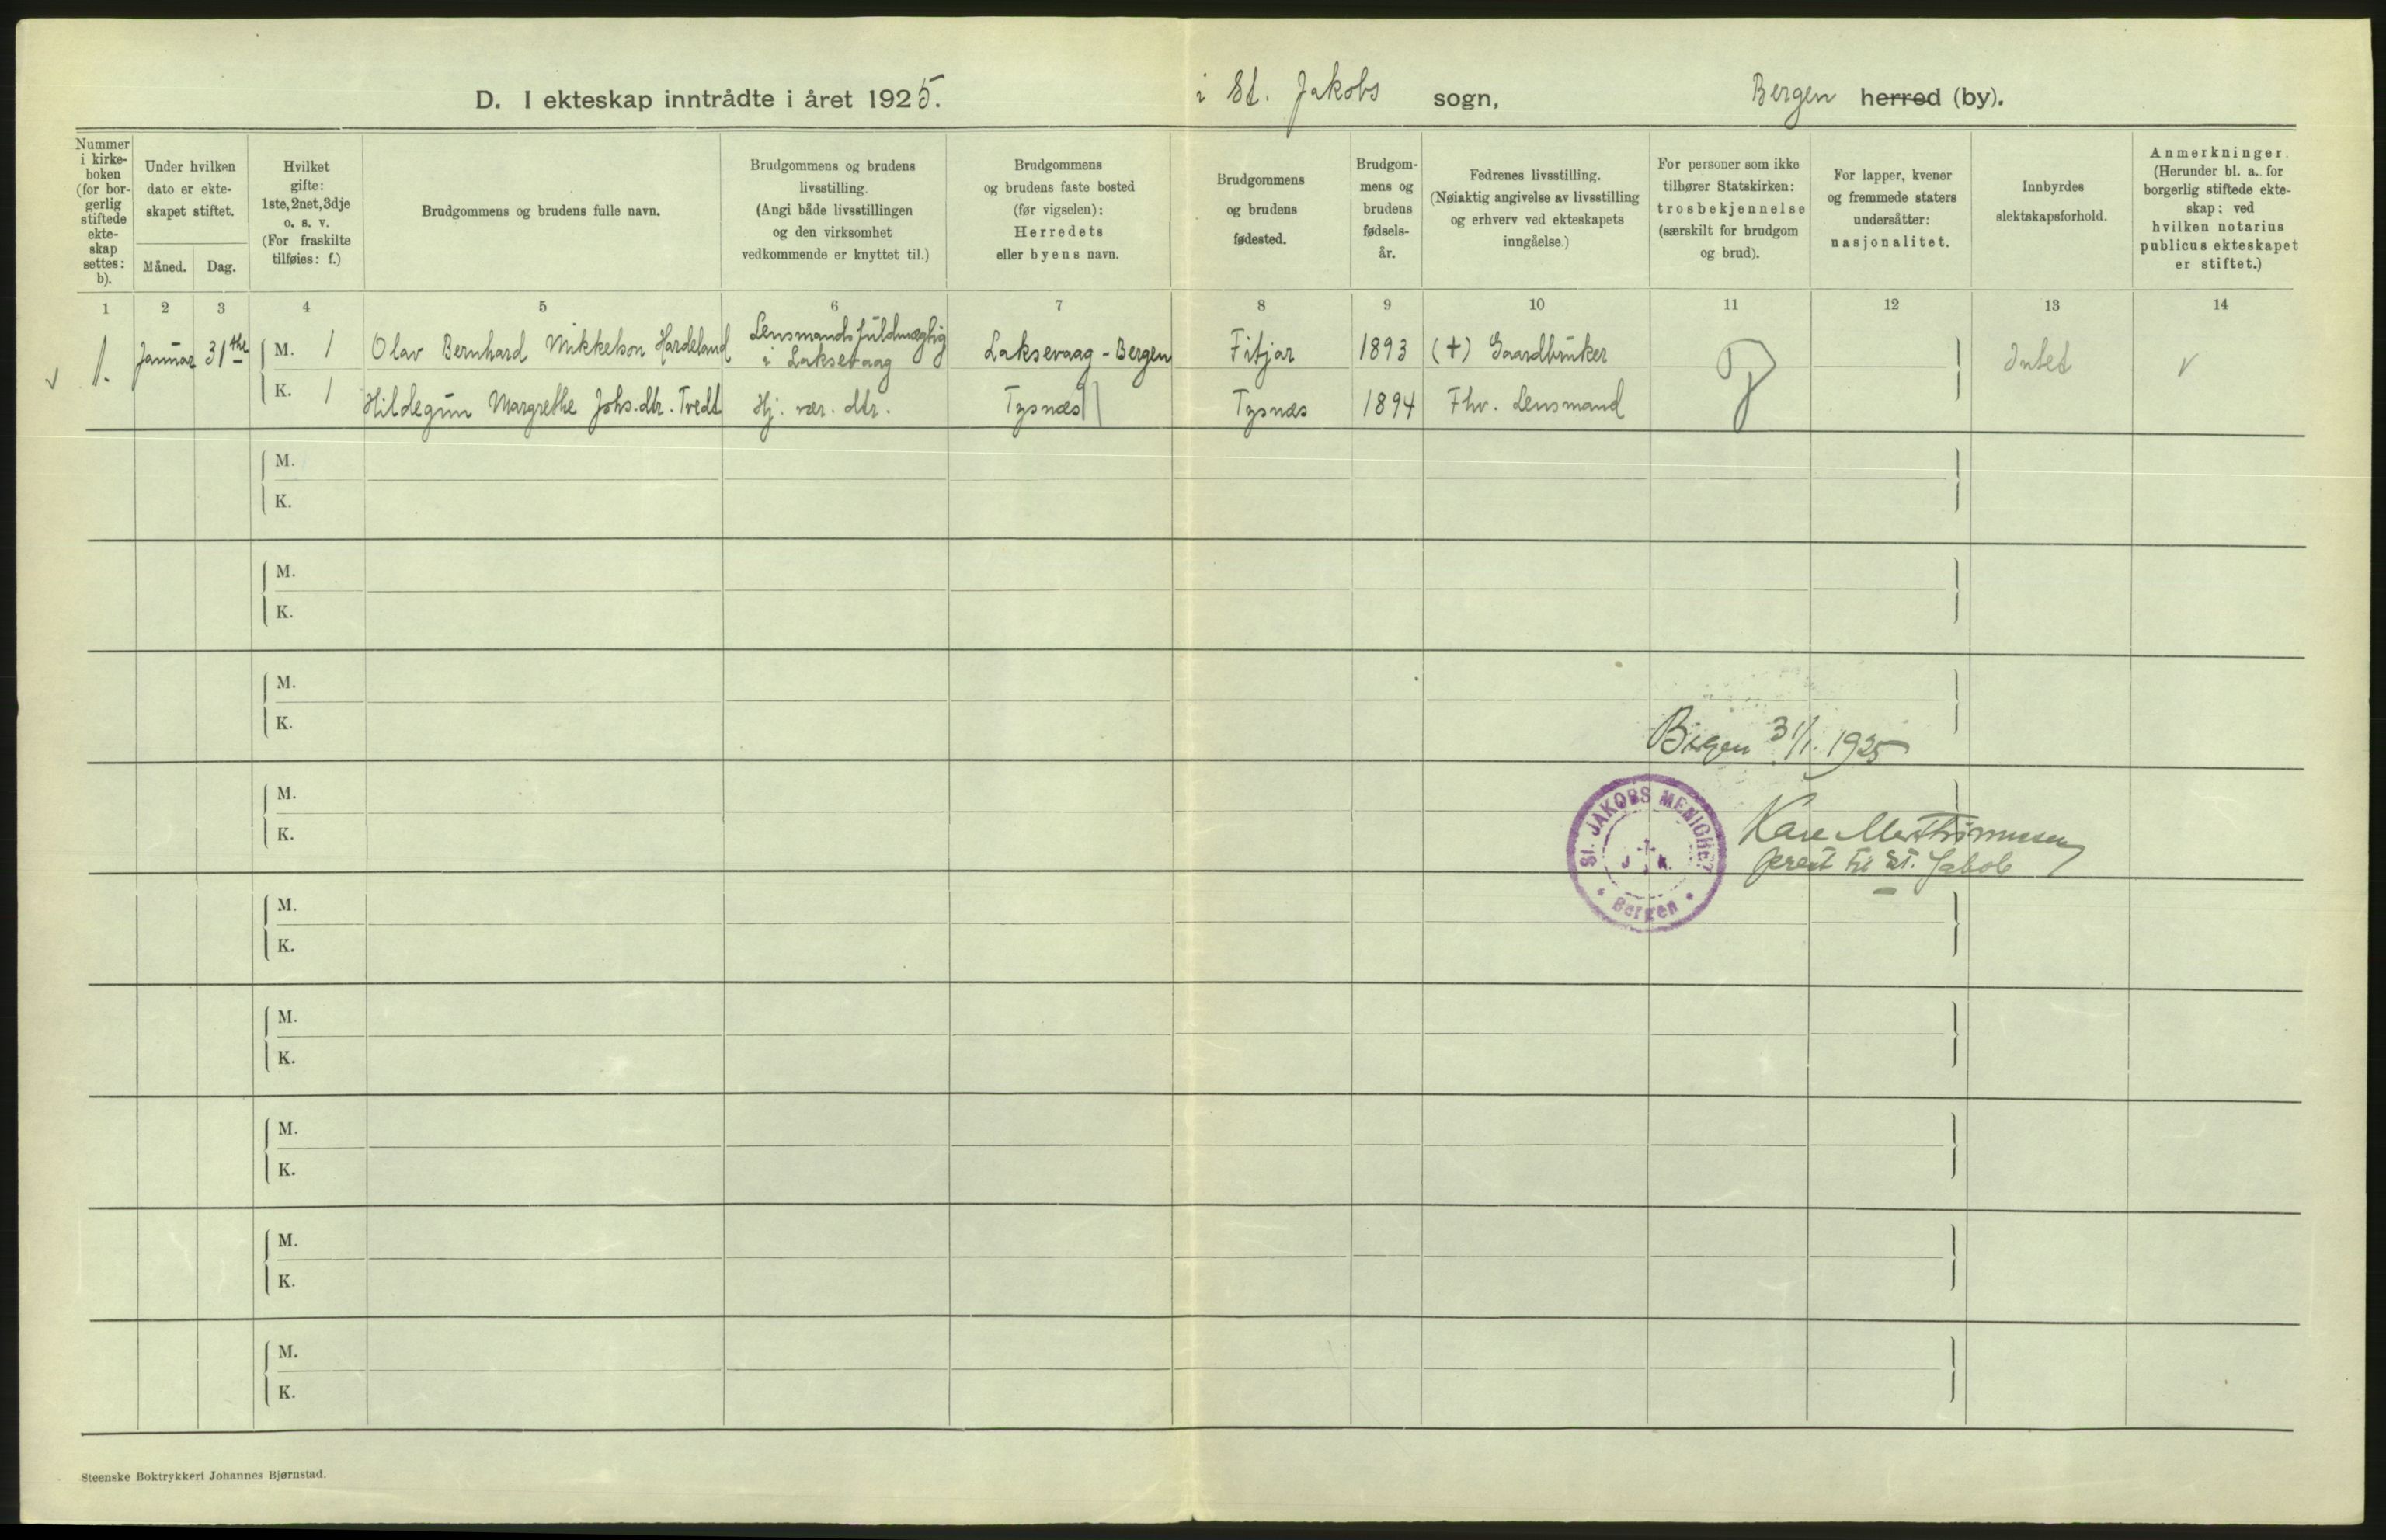 D. I ekteskap inntrådte i året 1925. i St. Jakobs sogn, Bergen herred (by).
Nummer
i kirke-
boken
(for bor-
gerlig
stiftede
ekte-
skap
settes:
b).
Under hvilken
dato er ekte-
skapet stiftet.
Måned. Dag.
Hvilket
gifte:
1ste, 2net, 3dje
o. s. v.
(For fraskilte
tilføies: f.)
Brudgommens og brudens fulle navn.
Brudgommens og brudens
livsstilling.
(Angi både livsstillingen
og den virksomhet
vedkommende er knyttet til.)
Brudgommens
og brudens faste bosted
(før vigselen):
Herredets
eller byens navn.
Brudgommens
og brudens
fødested.
Brudgom-
mens og
brudens
fødsels-
år.
Fedrenes livsstilling.
(Nøiaktig angivelse av livsstilling
og erhverv ved ekteskapets
inngåelse.)
For personer som ikke
tilhører Statskirken:
trosbekjennelse
(særskilt for brudgom
og brud).
For lapper, kvener
og fremmede staters
undersåtter:
nasjonalitet.
Innbyrdes
slektskapsforhold.
Anmerkninger.
(Herunder bl. a. for
borgerlig stiftede ekte-
skap: ved
hvilken notarius
publicus ekteskapet
er stiftet.)
1 2 3 4 5 6 7 8 9 10 11 12 13 14
1. Januar 31te M. 1 Olav Bernhard Mikkelson Hardeland Lensmandsfuldmægtig i Laksevaag Laksevaag - Bergen Fitjar 1893 (+) Gaardbruker Intet
K. 1 Hildegun Margrethe Johs.dtr. Tvedt Hj. vær. dtr. Tysnæs Tysnæs 1894 Fhv. Lensmand
M.
K.
M.
K.
M.
K.
Bergen 31/1. 1925
M.
K.
St. JAKOBS MENIGHET
J K.
Bergen
prest til St. Jakob
M.
K.
M.
K.
M.
K.
M.
K.
M.
K.
Steenske Boktrykkeri Johannes Bjørnstad.